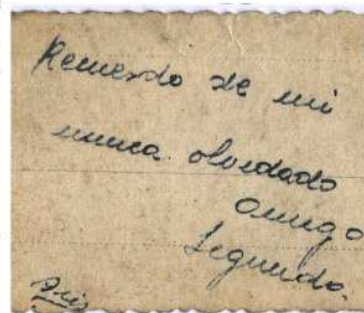 Recuerdo de mi
nunca olvidado
amigo
Segundo.